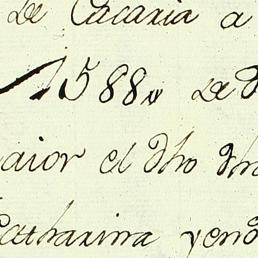 de Cacaria a
1588 de
aior el dho
Catharina